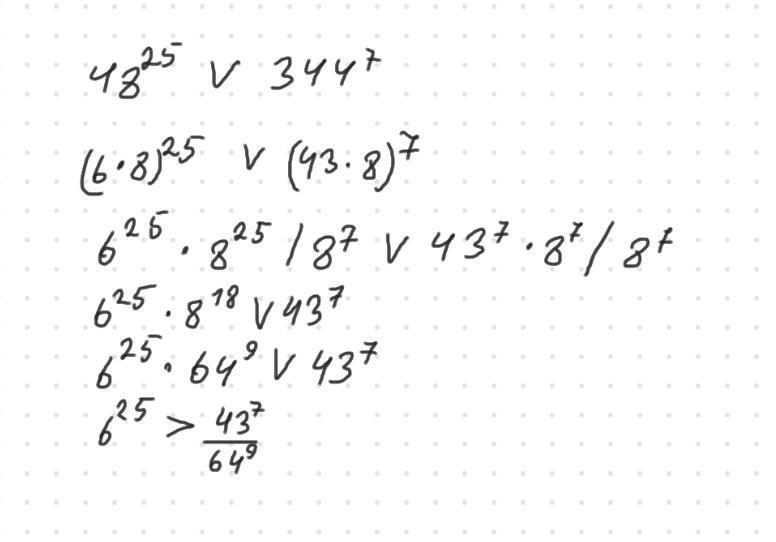 48^25 V 344^7
(6·8)^25 V (43·8)^7
6^25 · 8^25 / 8^7 V 43^7 · 8^7 / 8^7
6^25 · 8^18 V 43^7
6^25 · 64^9 V 43^7
6^25 > 43^7/64^9